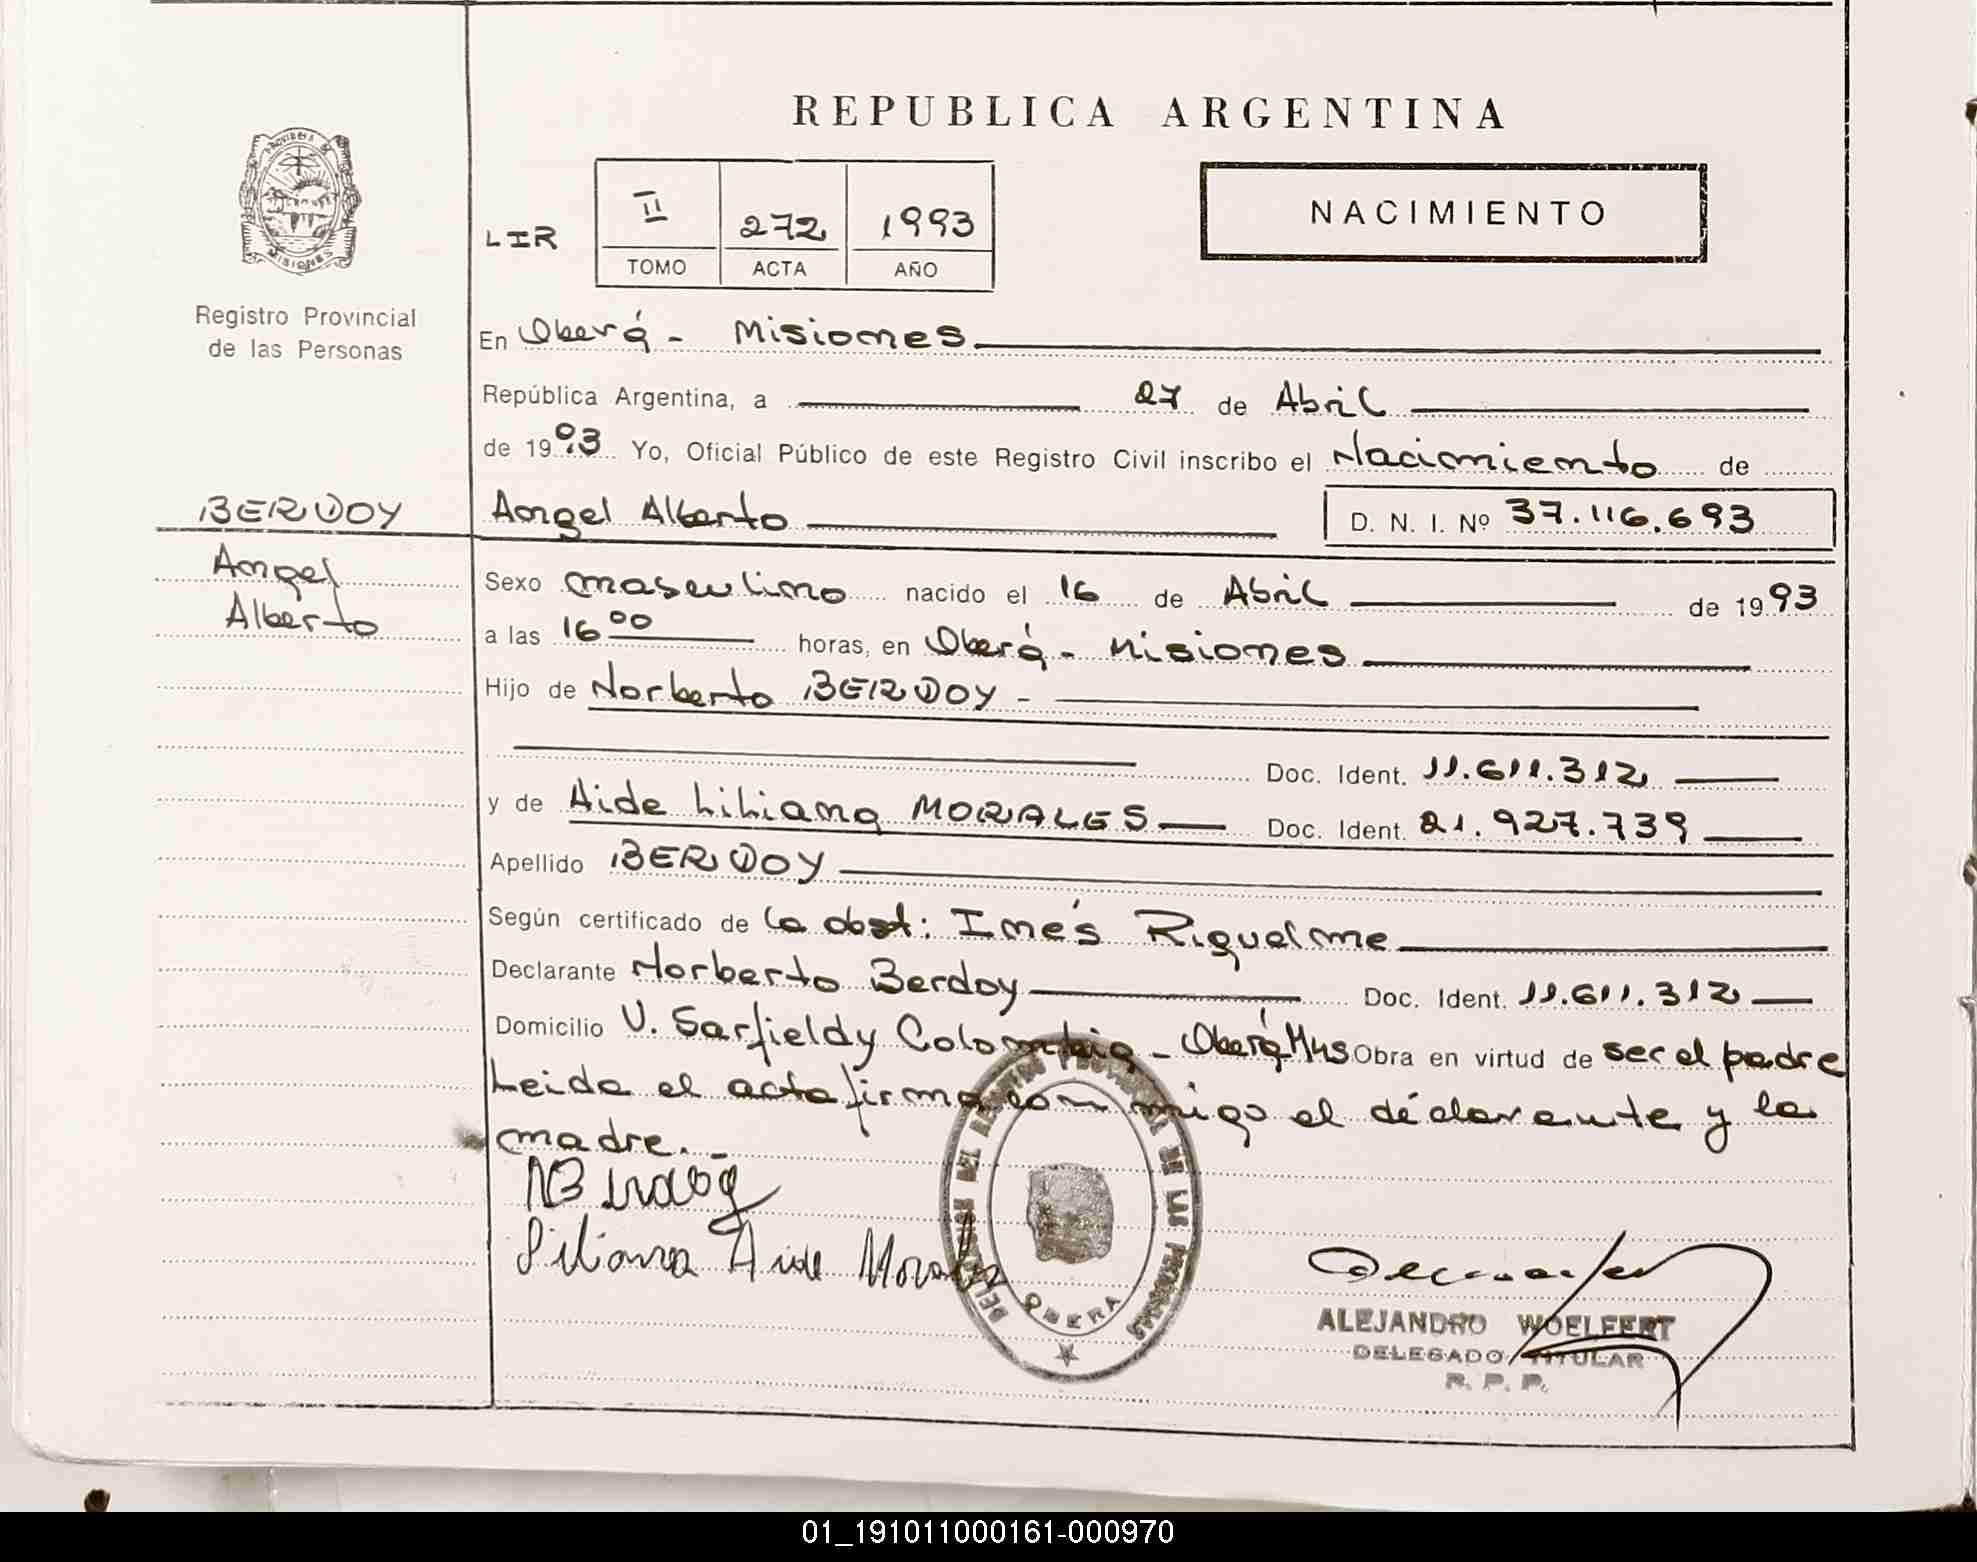 REPUBLICA ARGENTINA
PROVINCIA DE
MISIONES
Registro Provincial
de las Personas
LIR
II 272 1993
TOMO ACTA AÑO
NACIMIENTO
En Oberá - Misiones
República Argentina, a 27 de Abril
de 1993 Yo, Oficial Público de este Registro Civil inscribo el Nacimiento de
BERDOY Angel Alberto D. N. I. Nº 37.116.693
Angel
Alberto
Sexo masculino nacido el 16 de Abril de 1993
a las 16 00 horas, en Oberá - Misiones
Hijo de Norberto BERDOY -
Doc. Ident. 11.611.312
y de Aide Liliana MORALES Doc. Ident. 21.927.739
Apellido BERDOY
Según certificado de la obst: Inés Riquelme
Declarante Norberto Berdoy Doc. Ident. 11.611.312
Domicilio V. Sarfield y Colombia - Oberá Mns Obra en virtud de ser el padre
Leida el acta firma con migo el declarante y la
madre. -
Liliana Aide Morales
DELEGACION DEL REGISTRO PROVINCIAL DE LAS PERSONAS
OBERA
ALEJANDRO WOELFERT
DELEGADO TITULAR
R. P. P.
01_191011000161-000970